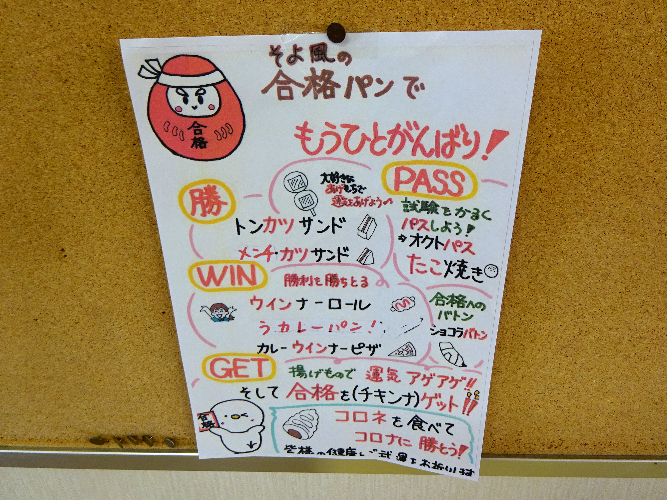 そよ風の
合格パンで
合格
もうひとがんばり!
大好きな
あげもちで
運をあげようの
PASS
勝
試験をかるく
パスしよう!
トンカツサンド
オクトパス
メンチ・カツサンド
たこ焼き
WIN
勝利を勝ちとる
ウインナーロール
合格への
バトン
うカレーパン!
ショコラバトン
カレーウインナーピザ
GET
揚げもので 運気アゲアゲ!!
そして合格を(チキンナ)ゲット!!
合格
コロネを食べて
コロナに勝とう!
皆様の健康とご武運をお祈りします